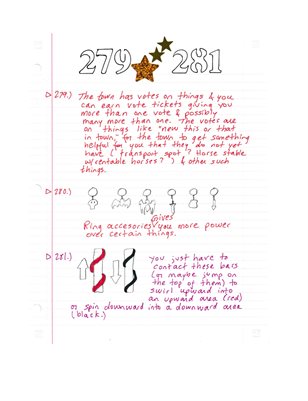 279 281
279.) The town has votes on things & you
can earn vote tickets giving you
more than one vote & possibly
many more than one. The votes are
on things like "new this or that
in town," for the town to get something
helpful for you that they do not yet
have (transport spot? Horse stable
w/rentable horses?) & other such
things.
280.)
Gives
Ring accesories you more power
over certain things.
281.) You just have to
contact these bars
(or maybe jump on
the top of them) to
swirl upward into
an upward area (red)
or spin downward into a downward area
(black.)